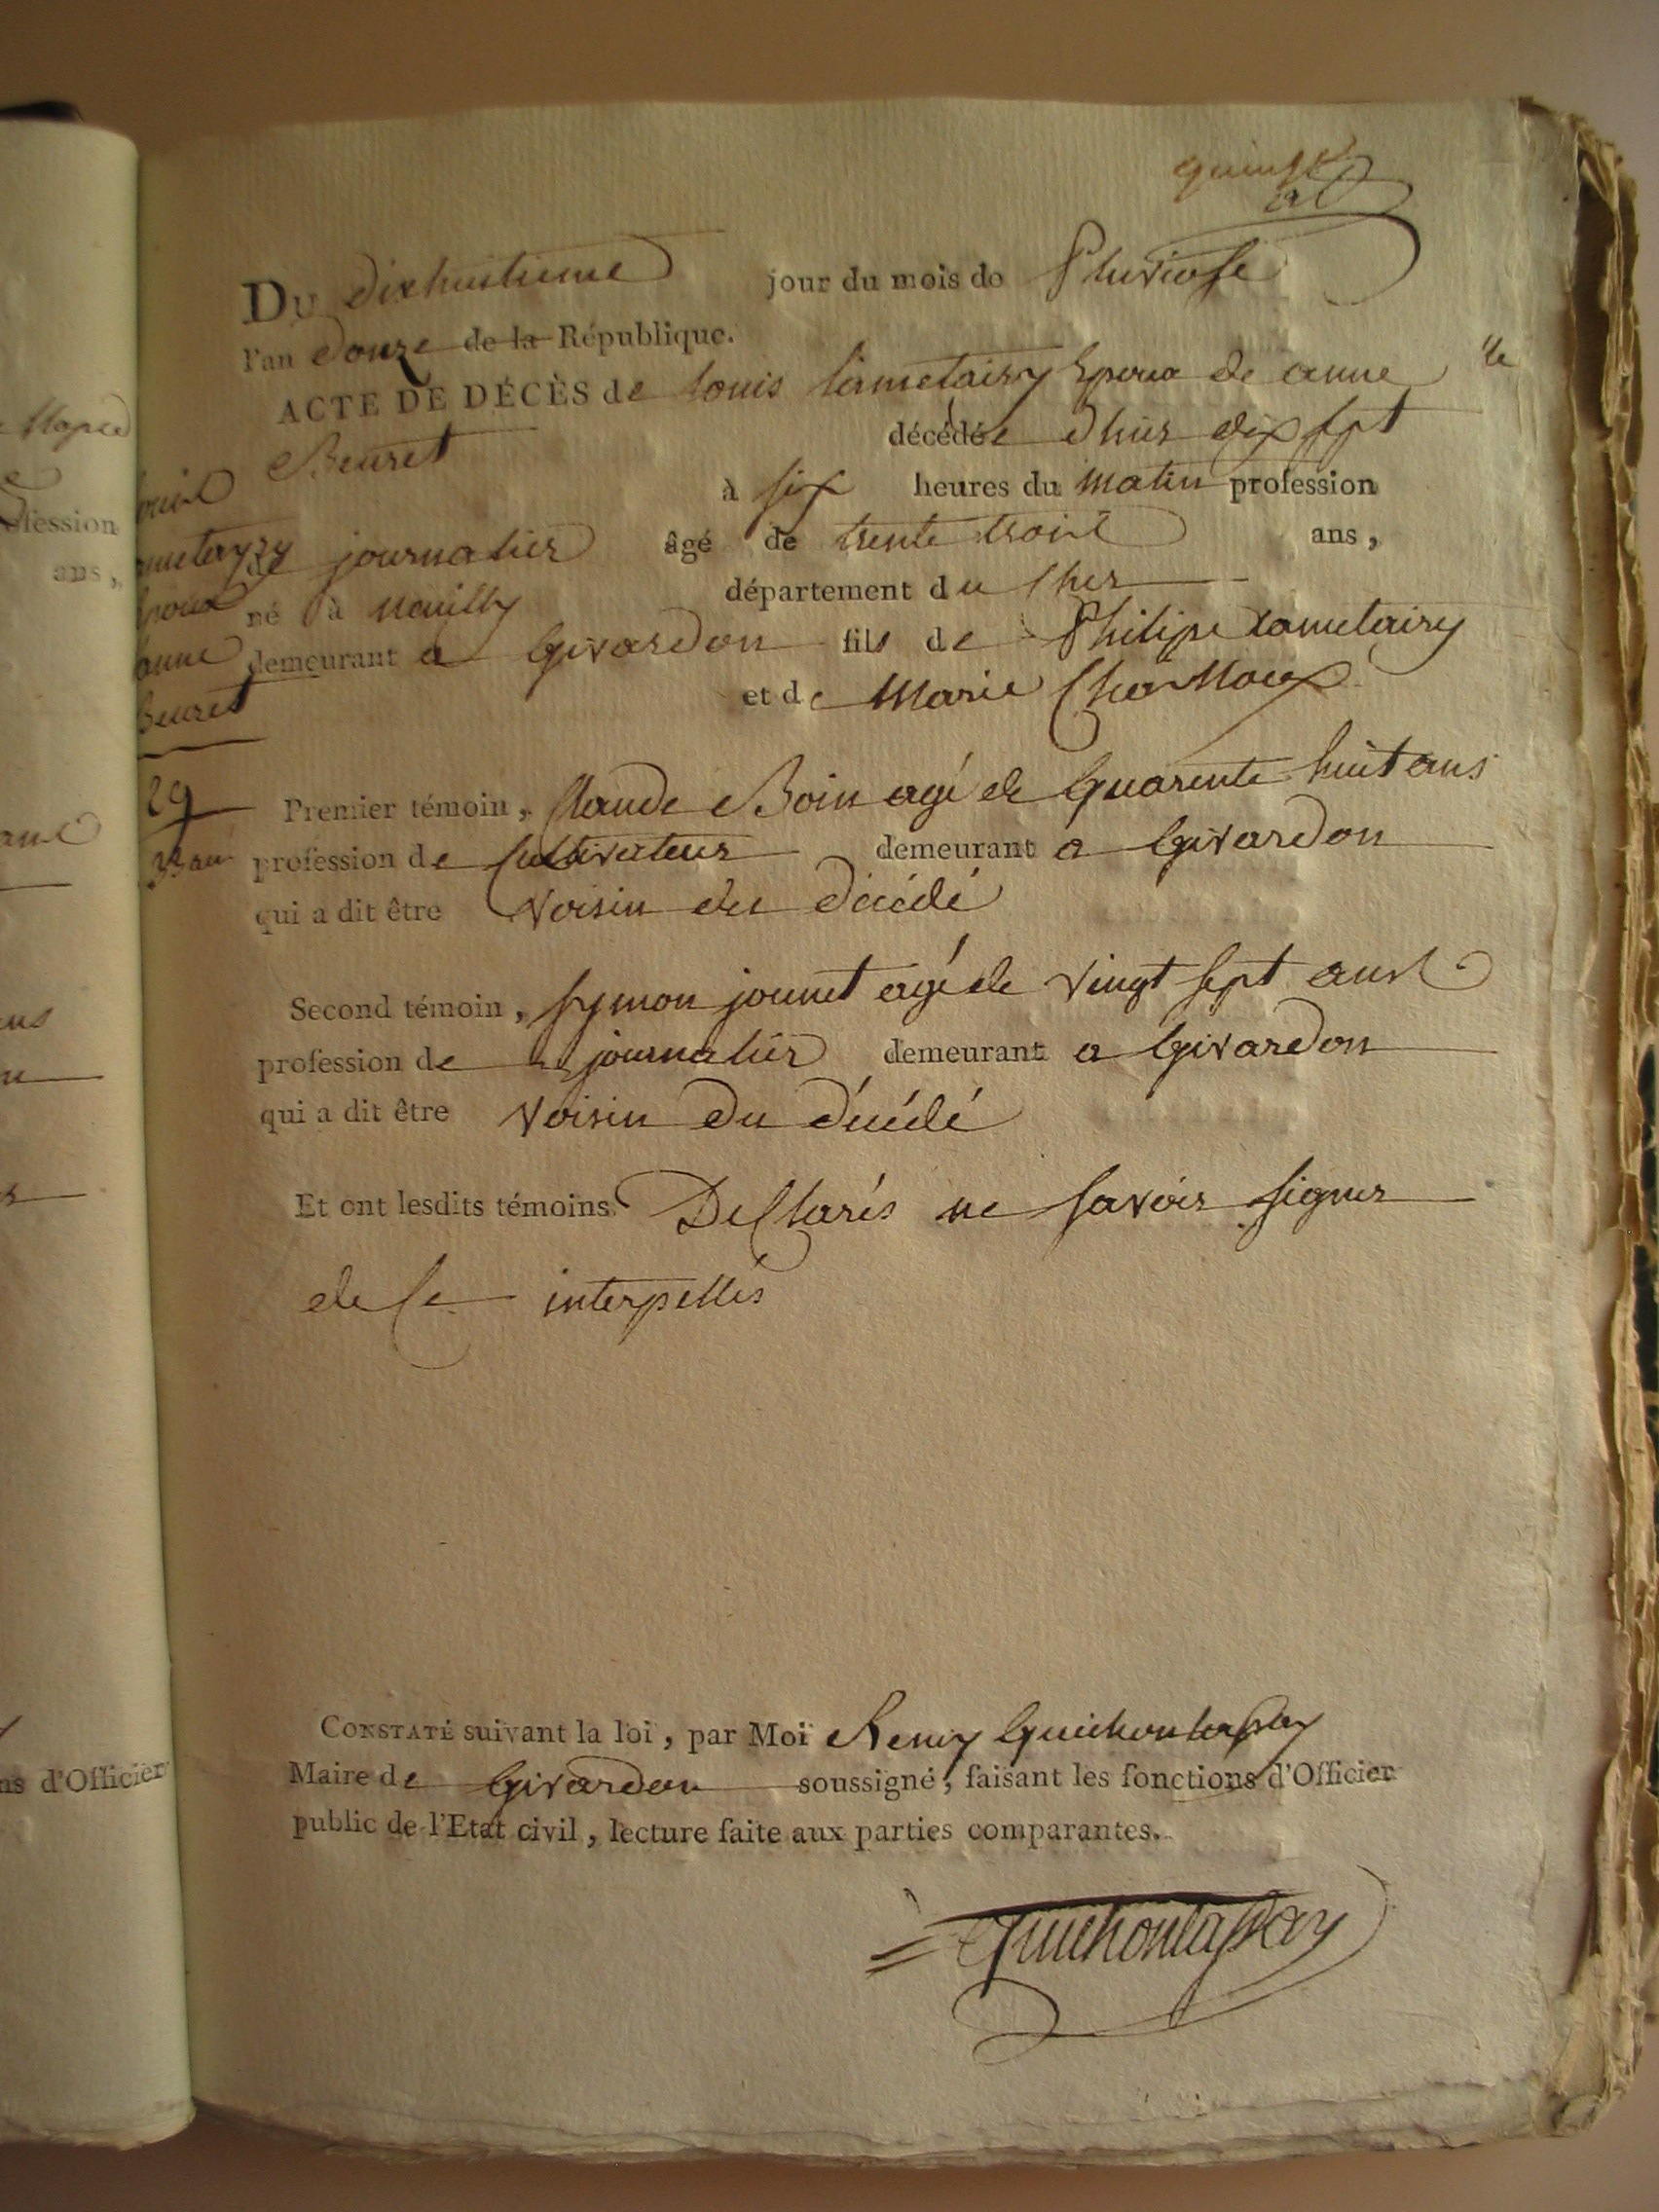 quinze
Du dixhuitieme jour du mois de Pluviose
l'an douze de la République.
ACTE DE DÉCÈS de Louis Lametairy Epoux de anne
Beuret décédée d'hier dix sept
à six heures du matin profession
journalier âgé de trente trois ans,
né à neuilly département du Cher
demeurant a Givardon fils de Philipe Lametairy
et de Marie Charlloux
epoux
anne
Beuret
29
33 an
Premier témoin, Claude Boin agé de Quarente huit ans
profession de Cultivateur demeurant a Givardon
qui a dit être Voisin du décédé
Second témoin, Symon jounet agé de vingt sept ans
profession de journalier demeurant a Givardon
qui a dit être voisin du décédé
Et ont lesdits témoins Desclarés ne savoir signer
de ce interpellés
CONSTATÉ suivant la loi, par Moi Remy Guichonlassay
Maire de Givardon soussigné, faisant les fonctions d'Officier
public de l'Etat civil, lecture faite aux parties comparantes.
Guichonlassay
fession
ans,
ns d'Officier